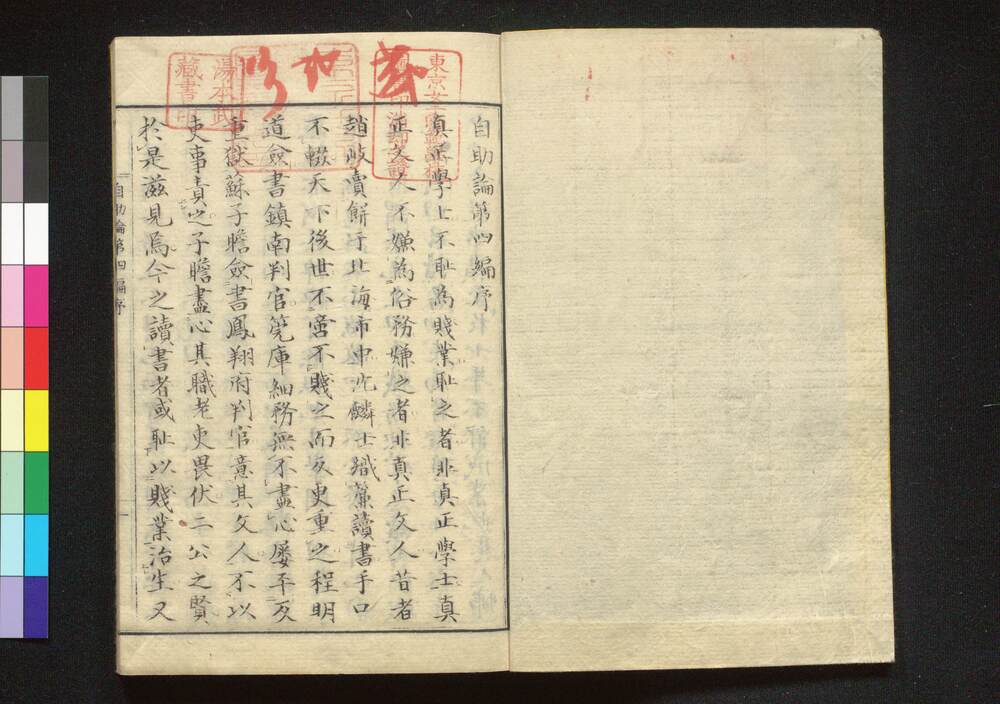 自助論第四編序
真正學士不恥為賤業恥之者非真正學士真
正文人不嫌為俗務嫌之者非真正文人昔者
趙岐賣餅于北海市中沈麟士織簾讀書手口
不輟天下後世不啻不賤之而反更重之程明
道僉書鎮南判官筦庫細務無不盡心屢平反
重獄蘇子瞻僉書鳳翔府判官意其文人不以
吏事責之子瞻盡心其職老吏畏伏二公之賢
於是滋見焉今之讀書者或恥以賤業治生又
自助論第四編序
一
湯本武
藏書印